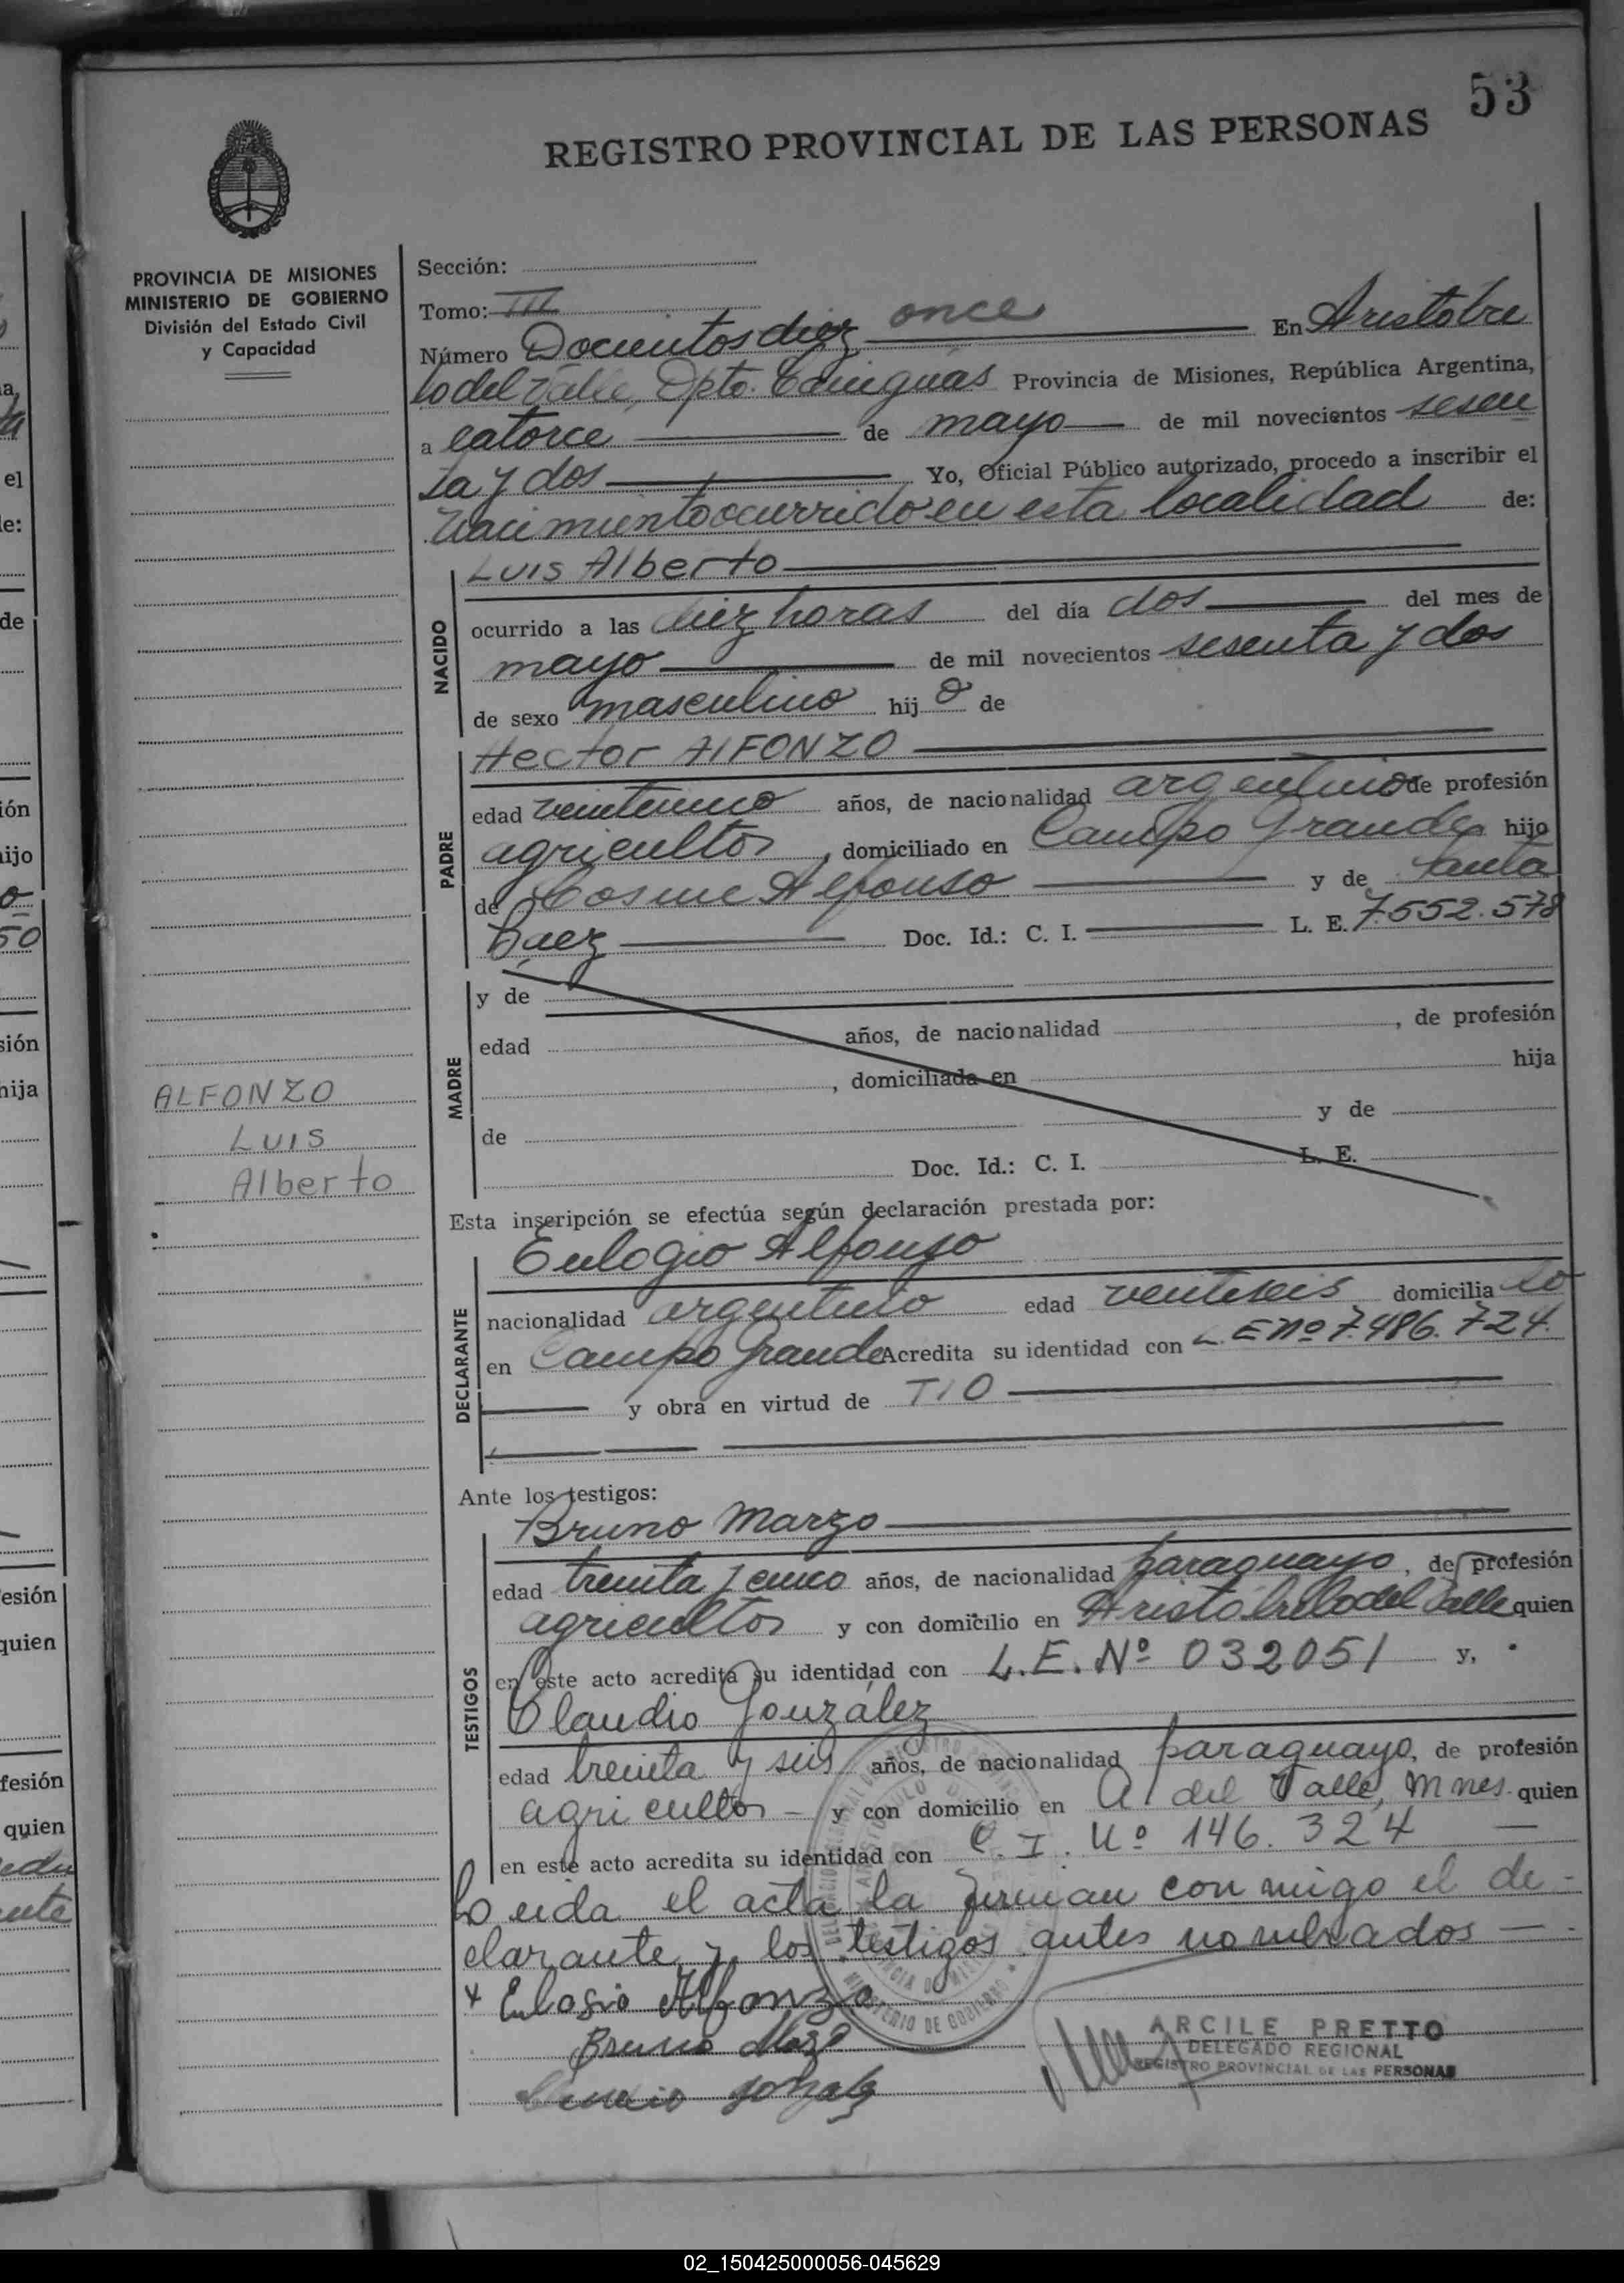 53
REGISTRO PROVINCIAL DE LAS PERSONAS
PROVINCIA DE MISIONES
MINISTERIO DE GOBIERNO
División del Estado Civil
y Capacidad
Sección:
Tomo: III
once
Número Docientos diez En Aristóbu
lo del Valle, Dpto. Cainguás Provincia de Misiones, República Argentina,
a catorce de mayo de mil novecientos sesen
ta y dos Yo, Oficial Público autorizado, procedo a inscribir el
Nacimiento ocurrido en esta localidad de:
LUIS Alberto
NACIDO
ocurrido a las diez horas del día dos del mes de
mayo de mil novecientos sesenta y dos
de sexo masculino hij o de
Hector AlFONZO
PADRE
edad veintiuno años, de nacionalidad argentino de profesión
agricultor, domiciliado en Campo Grande hijo
de Cosme Alfonso y de
Baez Doc. Id.: C. I. L. E. 7.552.578
MADRE
y de
edad años, de nacionalidad , de profesión
, domiciliada en hija
de y de
Doc. Id.: C. I. L. E.
ALFONZO
LUIS
Alberto
Esta inscripción se efectúa según declaración prestada por:
Eulogio Alfonzo
DECLARANTE
nacionalidad argentino edad veintiseis domicilia do
en Campo Grande Acredita su identidad con L. E nº 7.486.724.
y obra en virtud de TIO
Ante los testigos:
Bruno Marzo
TESTIGOS
edad treinta y cinco años, de nacionalidad paraguayo, de profesión
agricultor y con domicilio en Aristóbulo del Valle quien
en este acto acredita su identidad con L.E. Nº 032051 y,
Claudio González
edad treinta y seis años, de nacionalidad paraguayo, de profesión
agricultor y con domicilio en A. del Valle, Mnes. quien
en este acto acredita su identidad con C. I. Nº 146.324
Leida el acta la firman conmigo el de-
clarante y los testigos antes nombrados
MINISTERIO DE GOBIERNO
Eulogio Alfonzo
Bruno
ARCILE PRETTO
DELEGADO REGIONAL
REGISTRO PROVINCIAL DE LAS PERSONAS
02_150425000056-045629